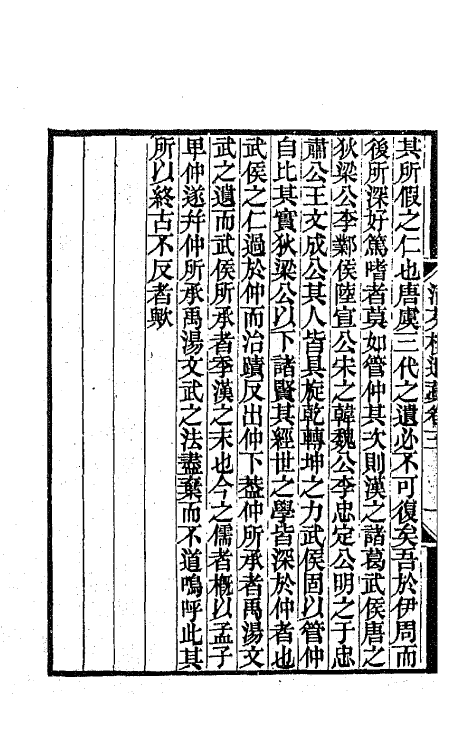 其所假之仁也唐虞三代之遺必不可復矣吾於伊周而
後所深好篤嗜者莫如管仲其次則漢之諸葛武侯唐之
狄梁公李鄴侯陸宣公宋之韓魏公李忠定公明之于忠
肅公王文成公其人皆具旋乾轉坤之力武侯固以管仲
自比其實狄梁公以下諸賢其經世之學皆深於仲者也
武侯之仁過於仲而治蹟反出仲下葢仲所承者禹湯文
武之遺而武侯所承者季漢之末也今之儒者槪以孟子
卑仲遂幷仲所承禹湯文武之法盡棄而不道嗚呼此其
所以終古不反者歟